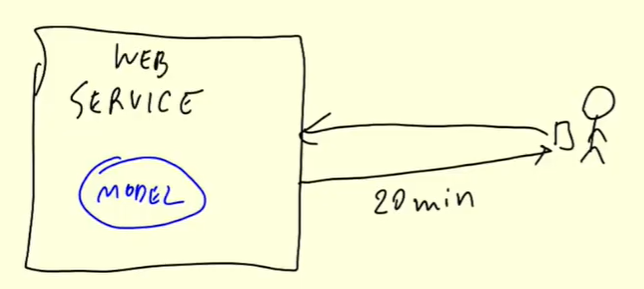 WEB
SERVICE
MODEL
20min